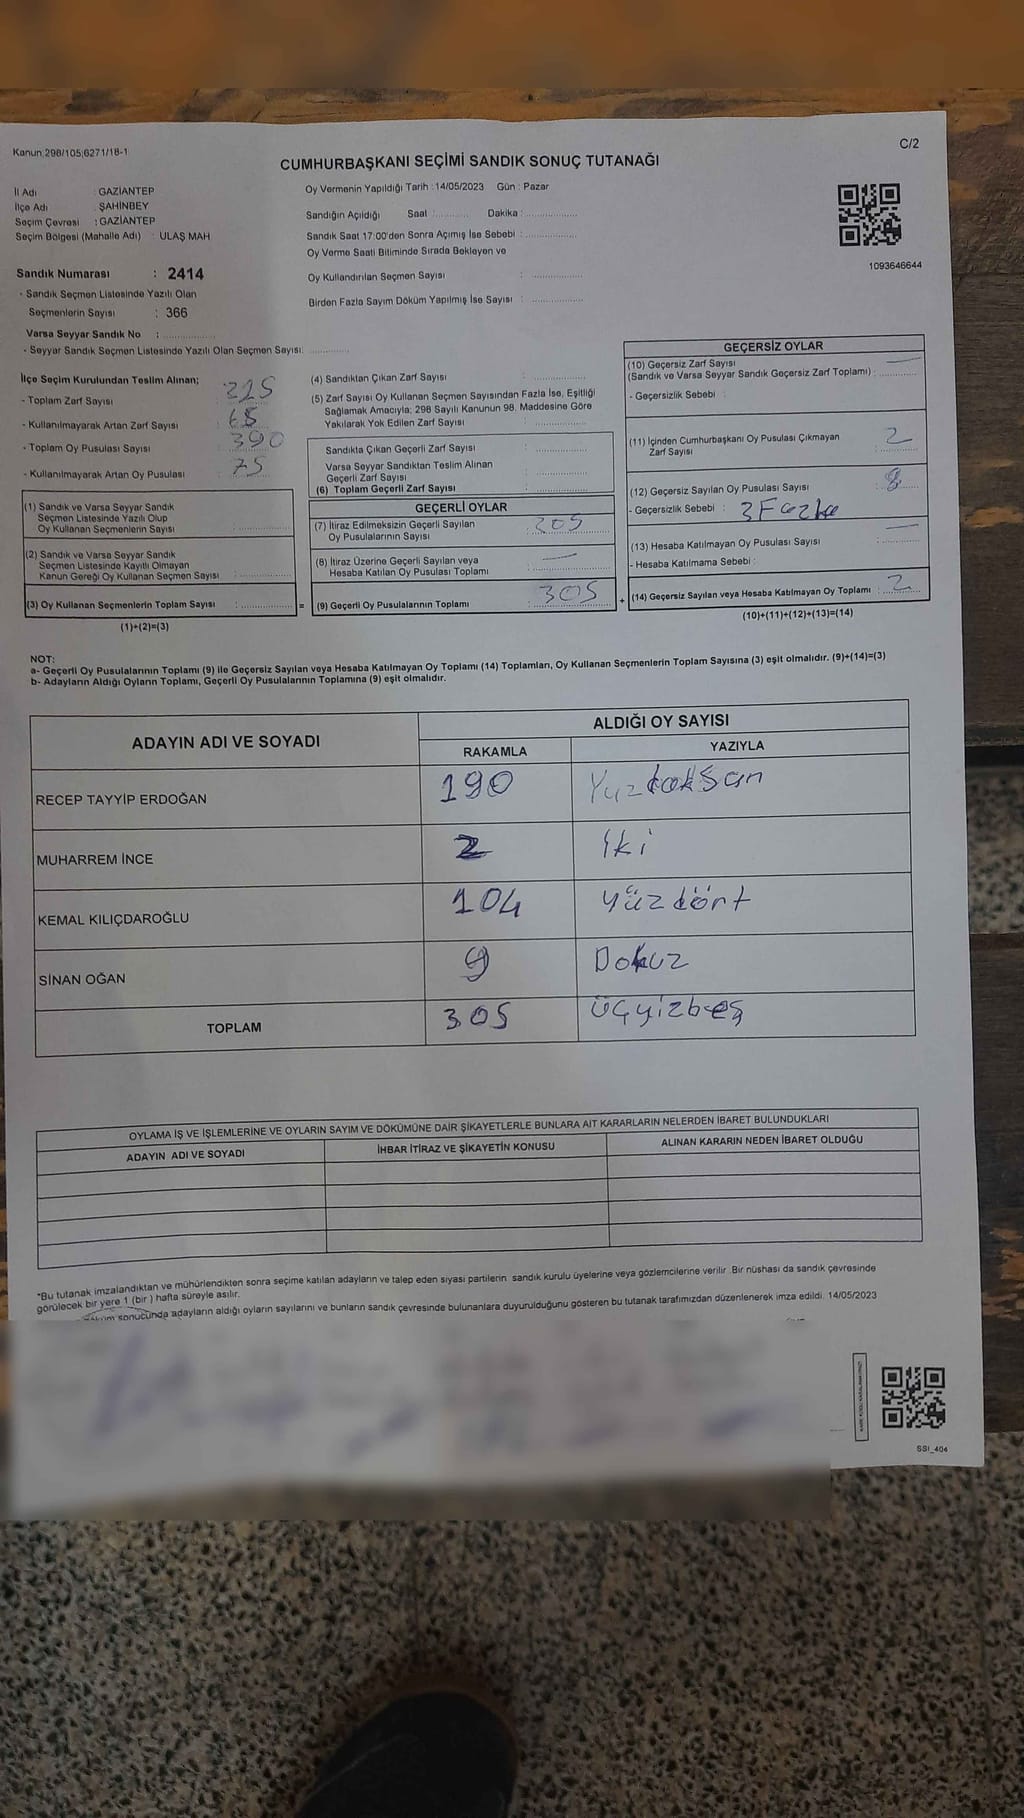 Kanun:298/105;6271/18-1
C/2
CUMHURBAŞKANI SEÇİMİ SANDIK SONUÇ TUTANAĞI
İl Adı : GAZİANTEP
İlçe Adı : ŞAHİNBEY
Seçim Çevresi : GAZİANTEP
Seçim Bölgesi (Mahalle Adı) : ULAŞ MAH
Oy Vermenin Yapıldığı Tarih : 14/05/2023 Gün : Pazar
Sandığın Açıldığı Saat : Dakika :
Sandık Saat 17:00'den Sonra Açımış İse Sebebi :
Oy Verme Saati Bitiminde Sırada Bekleyen ve
Oy Kullandırılan Seçmen Sayısı :
Birden Fazla Sayım Döküm Yapılmış İse Sayısı :
1093646644
Sandık Numarası : 2414
- Sandık Seçmen Listesinde Yazılı Olan
Seçmenlerin Sayısı : 366
Varsa Seyyar Sandık No :
- Seyyar Sandık Seçmen Listesinde Yazılı Olan Seçmen Sayısı:
İlçe Seçim Kurulundan Teslim Alınan;
- Toplam Zarf Sayısı :
- Kullanılmayarak Artan Zarf Sayısı : 65
- Toplam Oy Pusulası Sayısı : 390
- Kullanılmayarak Artan Oy Pusulası : 75
(1) Sandık ve Varsa Seyyar Sandık
Seçmen Listesinde Yazılı Olup
Oy Kullanan Seçmenlerin Sayısı :
(2) Sandık ve Varsa Seyyar Sandık
Seçmen Listesinde Kayıtlı Olmayan
Kanun Gereği Oy Kullanan Seçmen Sayısı :
(3) Oy Kullanan Seçmenlerin Toplam Sayısı :
(1)+(2)=(3)
(4) Sandıktan Çıkan Zarf Sayısı :
(5) Zarf Sayısı Oy Kullanan Seçmen Sayısından Fazla İse, Eşitliği
Sağlamak Amacıyla; 298 Sayılı Kanunun 98. Maddesine Göre
Yakılarak Yok Edilen Zarf Sayısı :
Sandıkta Çıkan Geçerli Zarf Sayısı :
Varsa Seyyar Sandıktan Teslim Alınan
Geçerli Zarf Sayısı :
(6) Toplam Geçerli Zarf Sayısı :
GEÇERLİ OYLAR
(7) İtiraz Edilmeksizin Geçerli Sayılan
Oy Pusulalarının Sayısı : 305
(8) İtiraz Üzerine Geçerli Sayılan veya
Hesaba Katılan Oy Pusulası Toplamı : —
= (9) Geçerli Oy Pusulalarının Toplamı : 305
GEÇERSİZ OYLAR
(10) Geçersiz Zarf Sayısı —
(Sandık ve Varsa Seyyar Sandık Geçersiz Zarf Toplamı) :
- Geçersizlik Sebebi :
(11) İçinden Cumhurbaşkanı Oy Pusulası Çıkmayan 2
Zarf Sayısı :
(12) Geçersiz Sayılan Oy Pusulası Sayısı : 8
- Geçersizlik Sebebi : 3 Fazla
(13) Hesaba Katılmayan Oy Pusulası Sayısı : —
- Hesaba Katılmama Sebebi :
+ (14) Geçersiz Sayılan veya Hesaba Katılmayan Oy Toplamı : 2
(10)+(11)+(12)+(13)=(14)
NOT:
a- Geçerli Oy Pusulalarının Toplamı (9) ile Geçersiz Sayılan veya Hesaba Katılmayan Oy Toplamı (14) Toplamları, Oy Kullanan Seçmenlerin Toplam Sayısına (3) eşit olmalıdır. (9)+(14)=(3)
b- Adayların Aldığı Oyların Toplamı, Geçerli Oy Pusulalarının Toplamına (9) eşit olmalıdır.
ADAYIN ADI VE SOYADI ALDIĞI OY SAYISI
RAKAMLA YAZIYLA
RECEP TAYYİP ERDOĞAN 190 Yuzdoksan
MUHARREM İNCE 2 İki
KEMAL KILIÇDAROĞLU 104 yüzdört
SİNAN OĞAN 9 Dokuz
TOPLAM 305 üçyüzbeş
OYLAMA İŞ VE İŞLEMLERİNE VE OYLARIN SAYIM VE DÖKÜMÜNE DAİR ŞİKAYETLERLE BUNLARA AİT KARARLARIN NELERDEN İBARET BULUNDUKLARI
ADAYIN ADI VE SOYADI İHBAR İTİRAZ VE ŞİKAYETİN KONUSU ALINAN KARARIN NEDEN İBARET OLDUĞU
"Bu tutanak imzalandıktan ve mühürlendikten sonra seçime katılan adayların ve talep eden siyasi partilerin sandık kurulu üyelerine veya gözlemcilerine verilir. Bir nüshası da sandık çevresinde
görülecek bir yere 1 (bir) hafta süreyle asılır.
sonucunda adayların aldığı oyların sayılarını ve bunların sandık çevresinde bulunanlara duyurulduğunu gösteren bu tutanak tarafımızdan düzenlenerek imza edildi. 14/05/2023
SSI_404